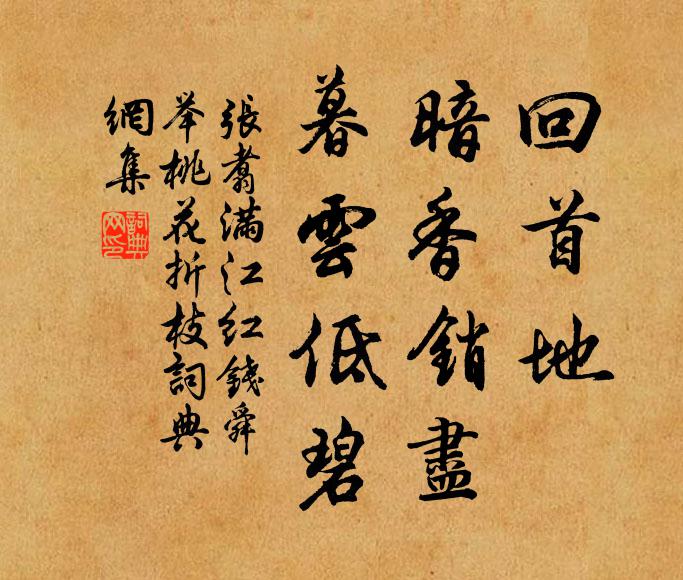 回首地
暗香銷盡
暮雲低碧
張翥滿江紅錢舜
举桃花折枝詞典
網集
詞典
网印